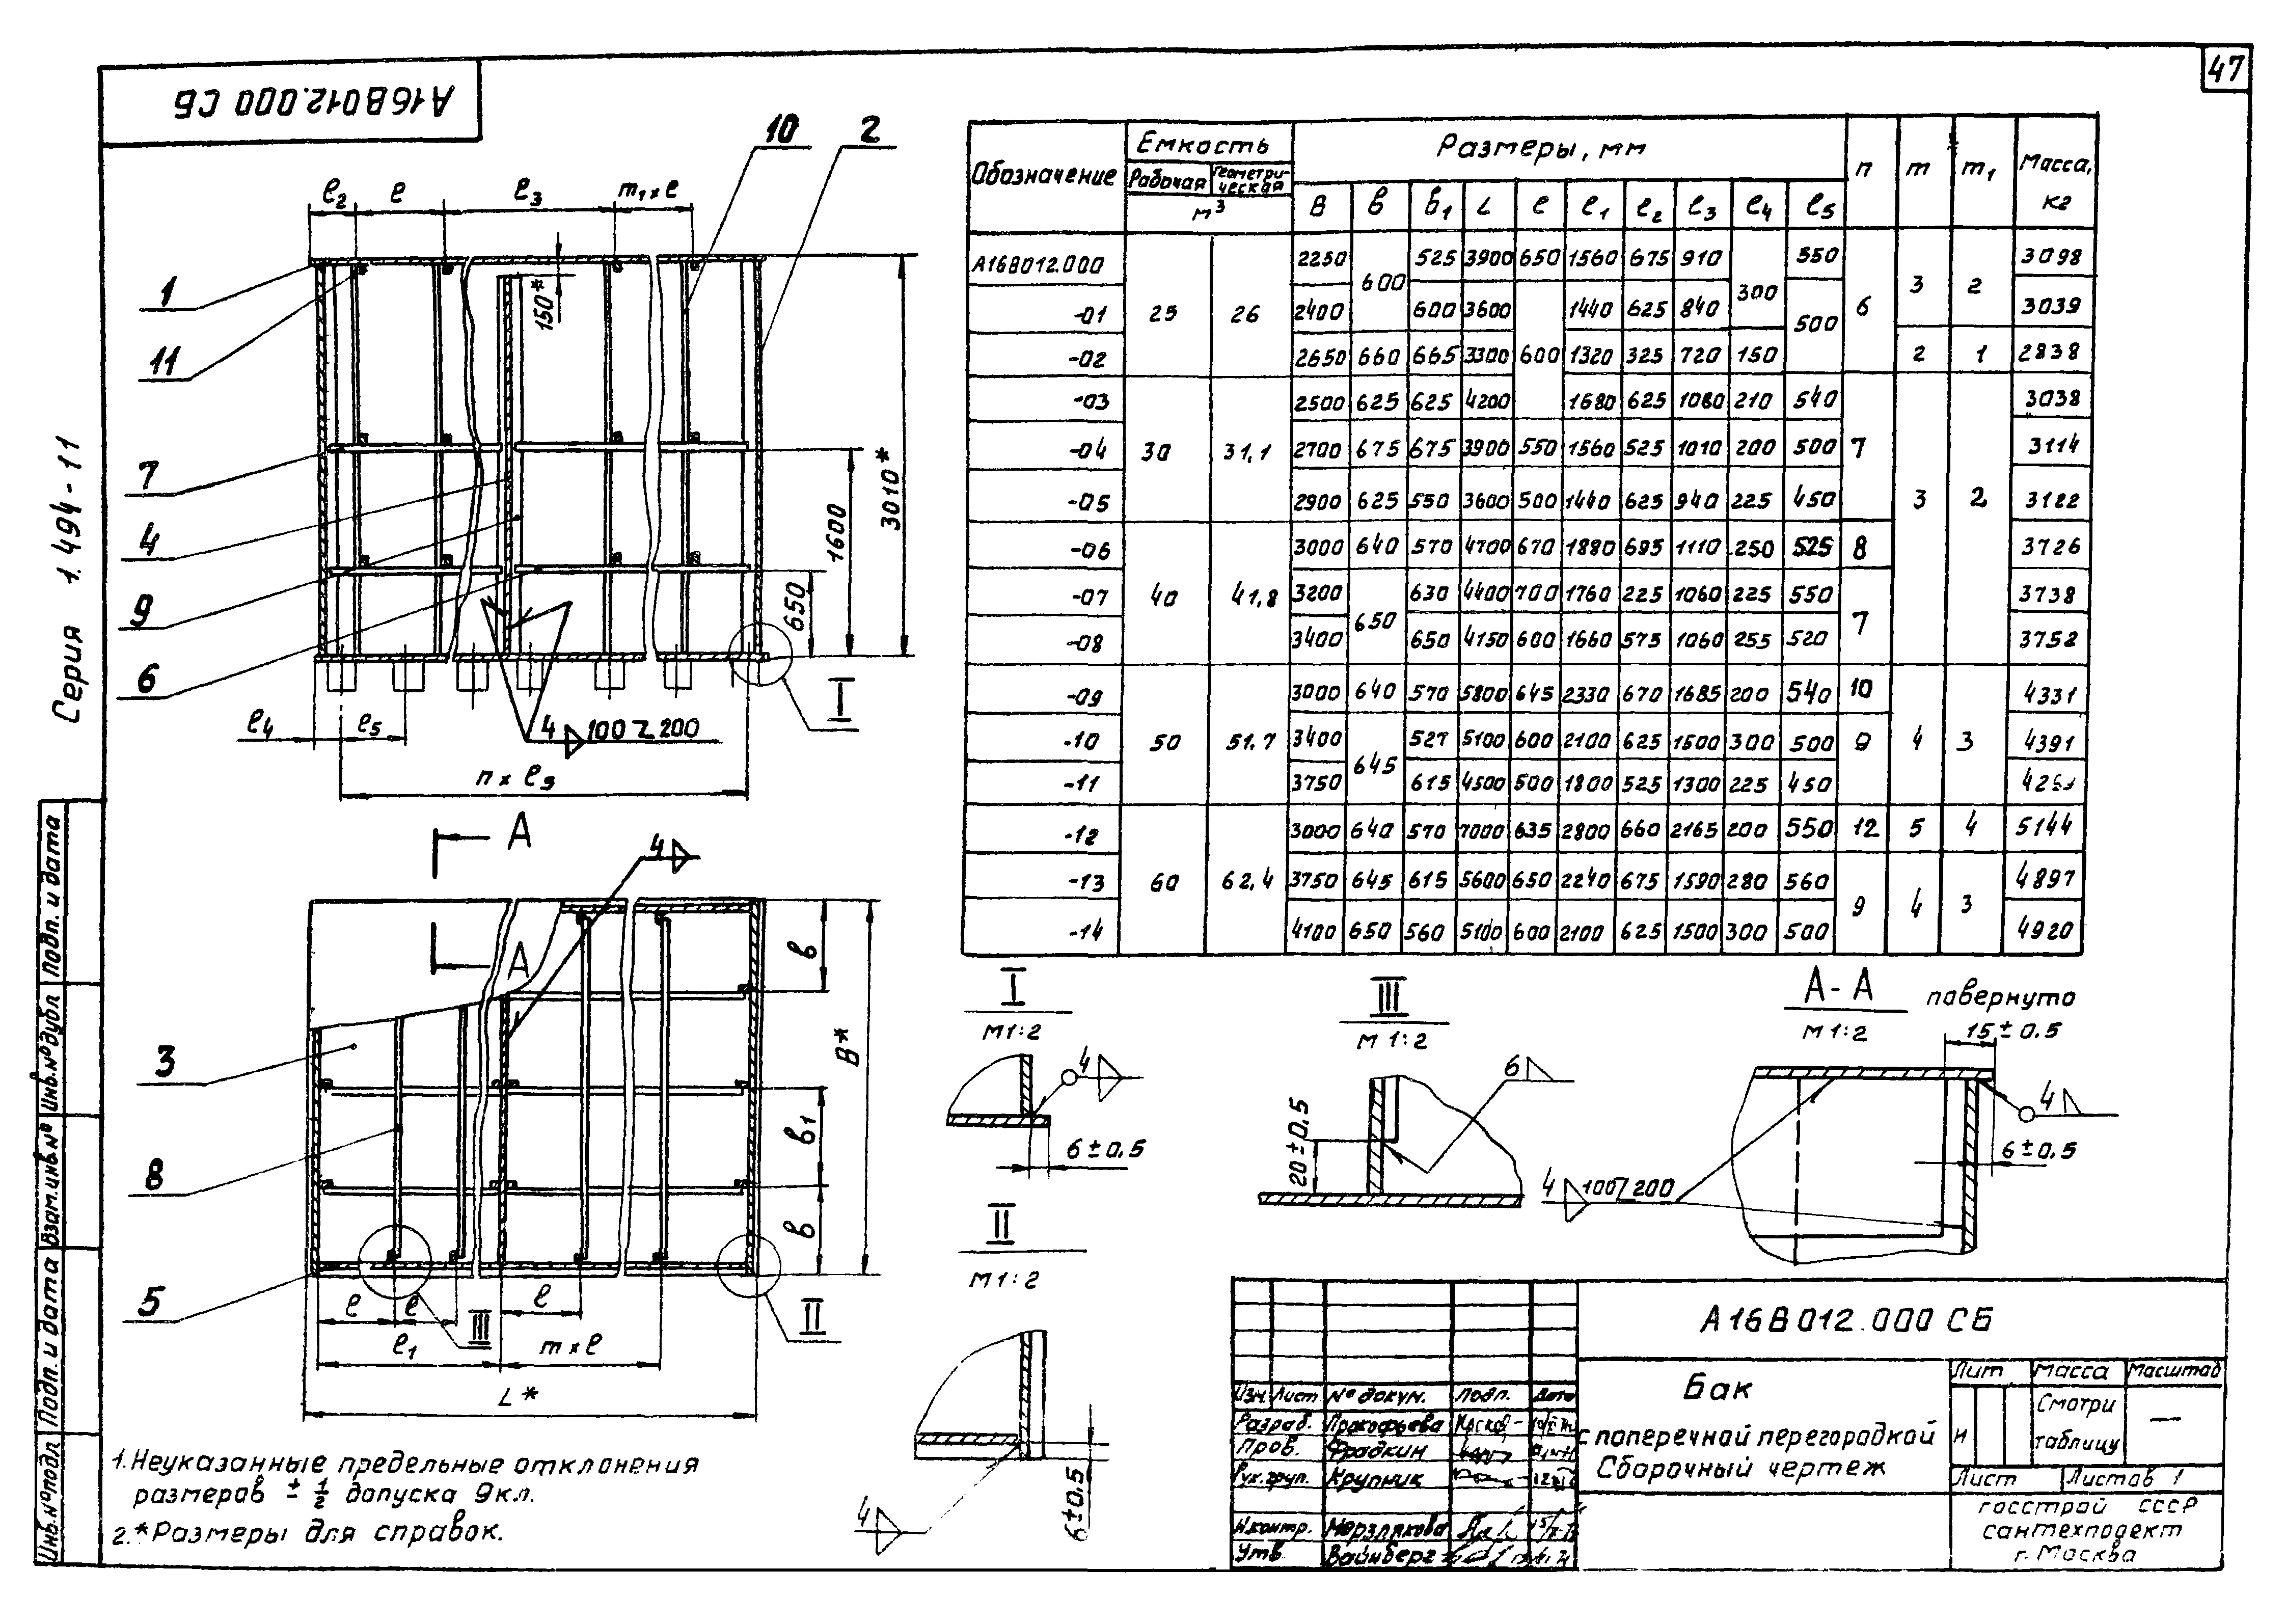 47
А16В012.000 СБ
Серия 1.494-11
10
2
ℓ2
ℓ
ℓ3
m1×ℓ
1
150*
11
7
4
9
6
1600
3010*
650
I
ℓ4
ℓ5
4 100 Z 200
n × ℓ5
А
4
А
в
В*
3
в1
8
в
5
ℓ
ℓ
III
ℓ
II
ℓ1
m×ℓ
L*
1. Неуказанные предельные отклонения
размеров ± 1/2 допуска 9кл.
2.*Размеры для справок.
Обозначение Емкость Размеры, мм n m m1 Масса, кг
Рабочая Геометрическая
м3
В в в1 L ℓ ℓ1 ℓ2 ℓ3 ℓ4 ℓ5
А16В012.000 25 26 2250 600 525 3900 650 1560 675 910 300 550 6 3 2 3098
-01 2400 600 3600 600 1440 625 840 500 3039
-02 2650 660 665 3300 1320 325 720 150 2 1 2838
-03 30 31,1 2500 625 625 4200 1680 625 1080 210 540 7 3 2 3038
-04 2700 675 675 3900 550 1560 525 1010 200 500 3114
-05 2900 625 550 3600 500 1440 625 940 225 450 3122
-06 40 41,8 3000 640 570 4700 670 1880 695 1110 250 525 8 3726
-07 3200 650 630 4400 700 1760 225 1060 225 550 7 3738
-08 3400 650 4150 600 1660 575 1060 255 520 3752
-09 50 51,7 3000 640 570 5800 645 2330 670 1685 200 540 10 4 3 4331
-10 3400 645 527 5100 600 2100 625 1500 300 500 9 4391
-11 3750 615 4500 500 1800 525 1300 225 450
-12 60 62,4 3000 640 570 7000 635 2800 660 2165 200 550 12 5 4 5144
-13 3750 645 615 5600 650 2240 675 1590 280 560 9 4 3 4897
-14 4100 650 560 5100 600 2100 625 1500 300 500 4920
I
М1:2
4
6±0,5
II
М1:2
4
6±0,5
III
М 1:2
6
20±0,5
А-А повернуто
М 1:2
15±0.5
4
6±0,5
4 100 Z 200
А16В012.000 СБ
Бак
с поперечной перегородкой
Сборочный чертеж
Лит. Масса Масштаб
И Смотри таблицу —
Лист Листов 1
госстрой СССР
сантехпроект
г. Москва
Изм. Лист № докум. Подп. Дата
Разраб. Прокофьева
Пров. Фрадкин
Рук.груп. Крупник
Н.контр. Мерзлякова
Утв. Вайнберг
Инв.№ подл.
Подп. и дата
Взам.инв.№
Инв.№ дубл
Подп. и дата